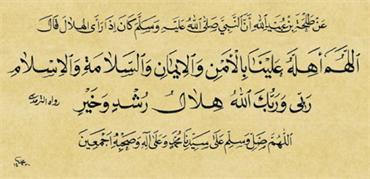 عَنْ طَلْحَةَ بْنِ عُبَيْدِ اللهِ أَنَّ النَّبِيَّ صَلَّى اللهُ عَلَيْهِ وَسَلَّمَ كَانَ إِذَا رَأَى الْهِلَالَ قَالَ
اَللّٰهُمَّ اَهِلَّهُ عَلَيْنَا بِالْاَمْنِ وَالْاِيمَانِ وَالسَّلَامَةِ وَالْاِسْلَامِ
رَبِّى وَرَبُّكَ اللهُ هِلَالُ رُشْدٍ وَخَيْرٍ رواه الترمذى
اَللّٰهُمَّ صَلِّ وَسَلِّمْ عَلَى سَيِّدِنَا مُحَمَّدٍ وَعَلَى آلِهِ وَصَحْبِهِ اَجْمَعِينَ